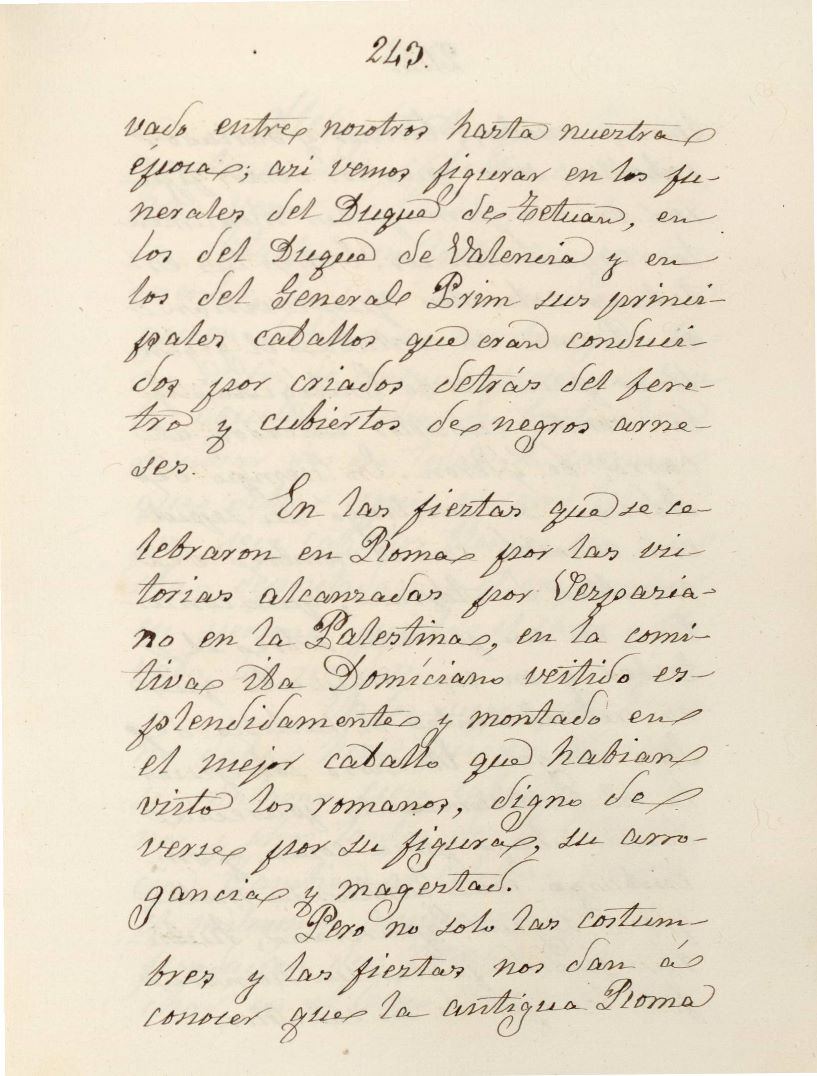 243.
vado entre nosotros hasta nuestra
época; asi vemos figurar en los fu-
nerales del Duque de Tetuan, en
los del Duque de Valencia y en
los del General Prim sus princi-
pales caballos que eran conduci-
dos por criados detrás del fere-
tro y cubiertos de negros arne-
ses.
En las fiestas que se ce-
lebraron en Roma por las vic-
torias alcanzadas por Vespasia-
no en la Palestina, en la comi-
tiva iba Domiciano vestido es-
plendidamente y montado en
el mejor caballo que habian
visto los romanos, digno de
verse por su figura, su arro-
gancia y magestad.
Pero no solo las costum-
bres y las fiestas nos dan á
conocer que la antigua Roma